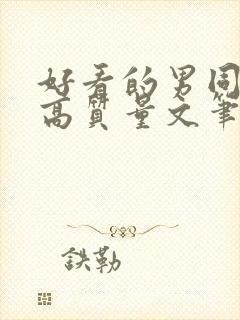 好看的男同
高质量文笔
鉄勒